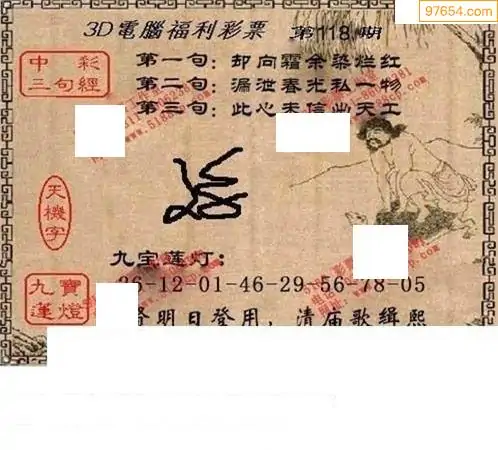 97654.com
3D電腦福利彩票 第118期
中彩
三句經
第一句：却向霜余染烂红
第二句：漏泄春光私一物
第三句：此心未信出天工
天機字
九宝莲灯：
26-12-01-46-29-56-78-05
九寶
蓮燈
明日登用，清庙歌缉熙